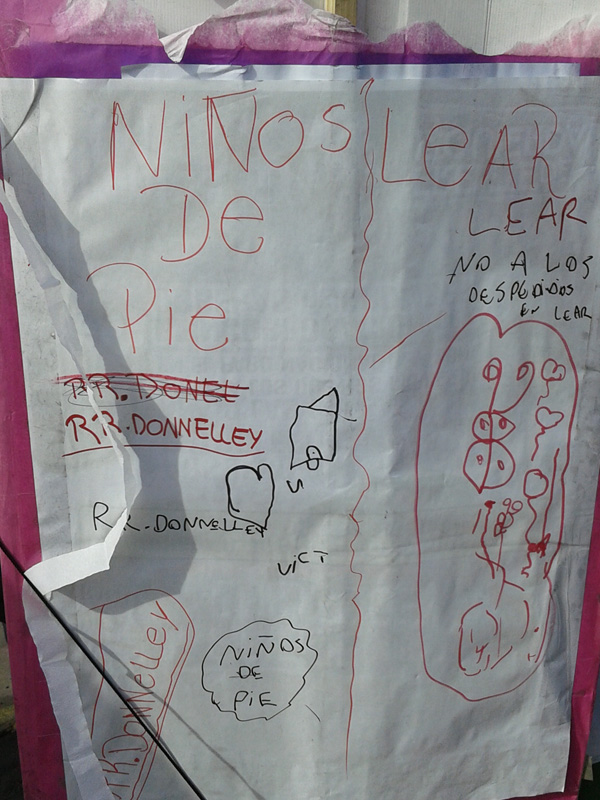 NiÑOS
De
Pie
RR. DONEL
RR. DONNELLEY
RR. DONNELLEY
ViCT
RR. Donnelley
NiÑOS
DE
PiE
LeAR
LEAR
NO A LOS
DESPEDiDOS
EN LEAR